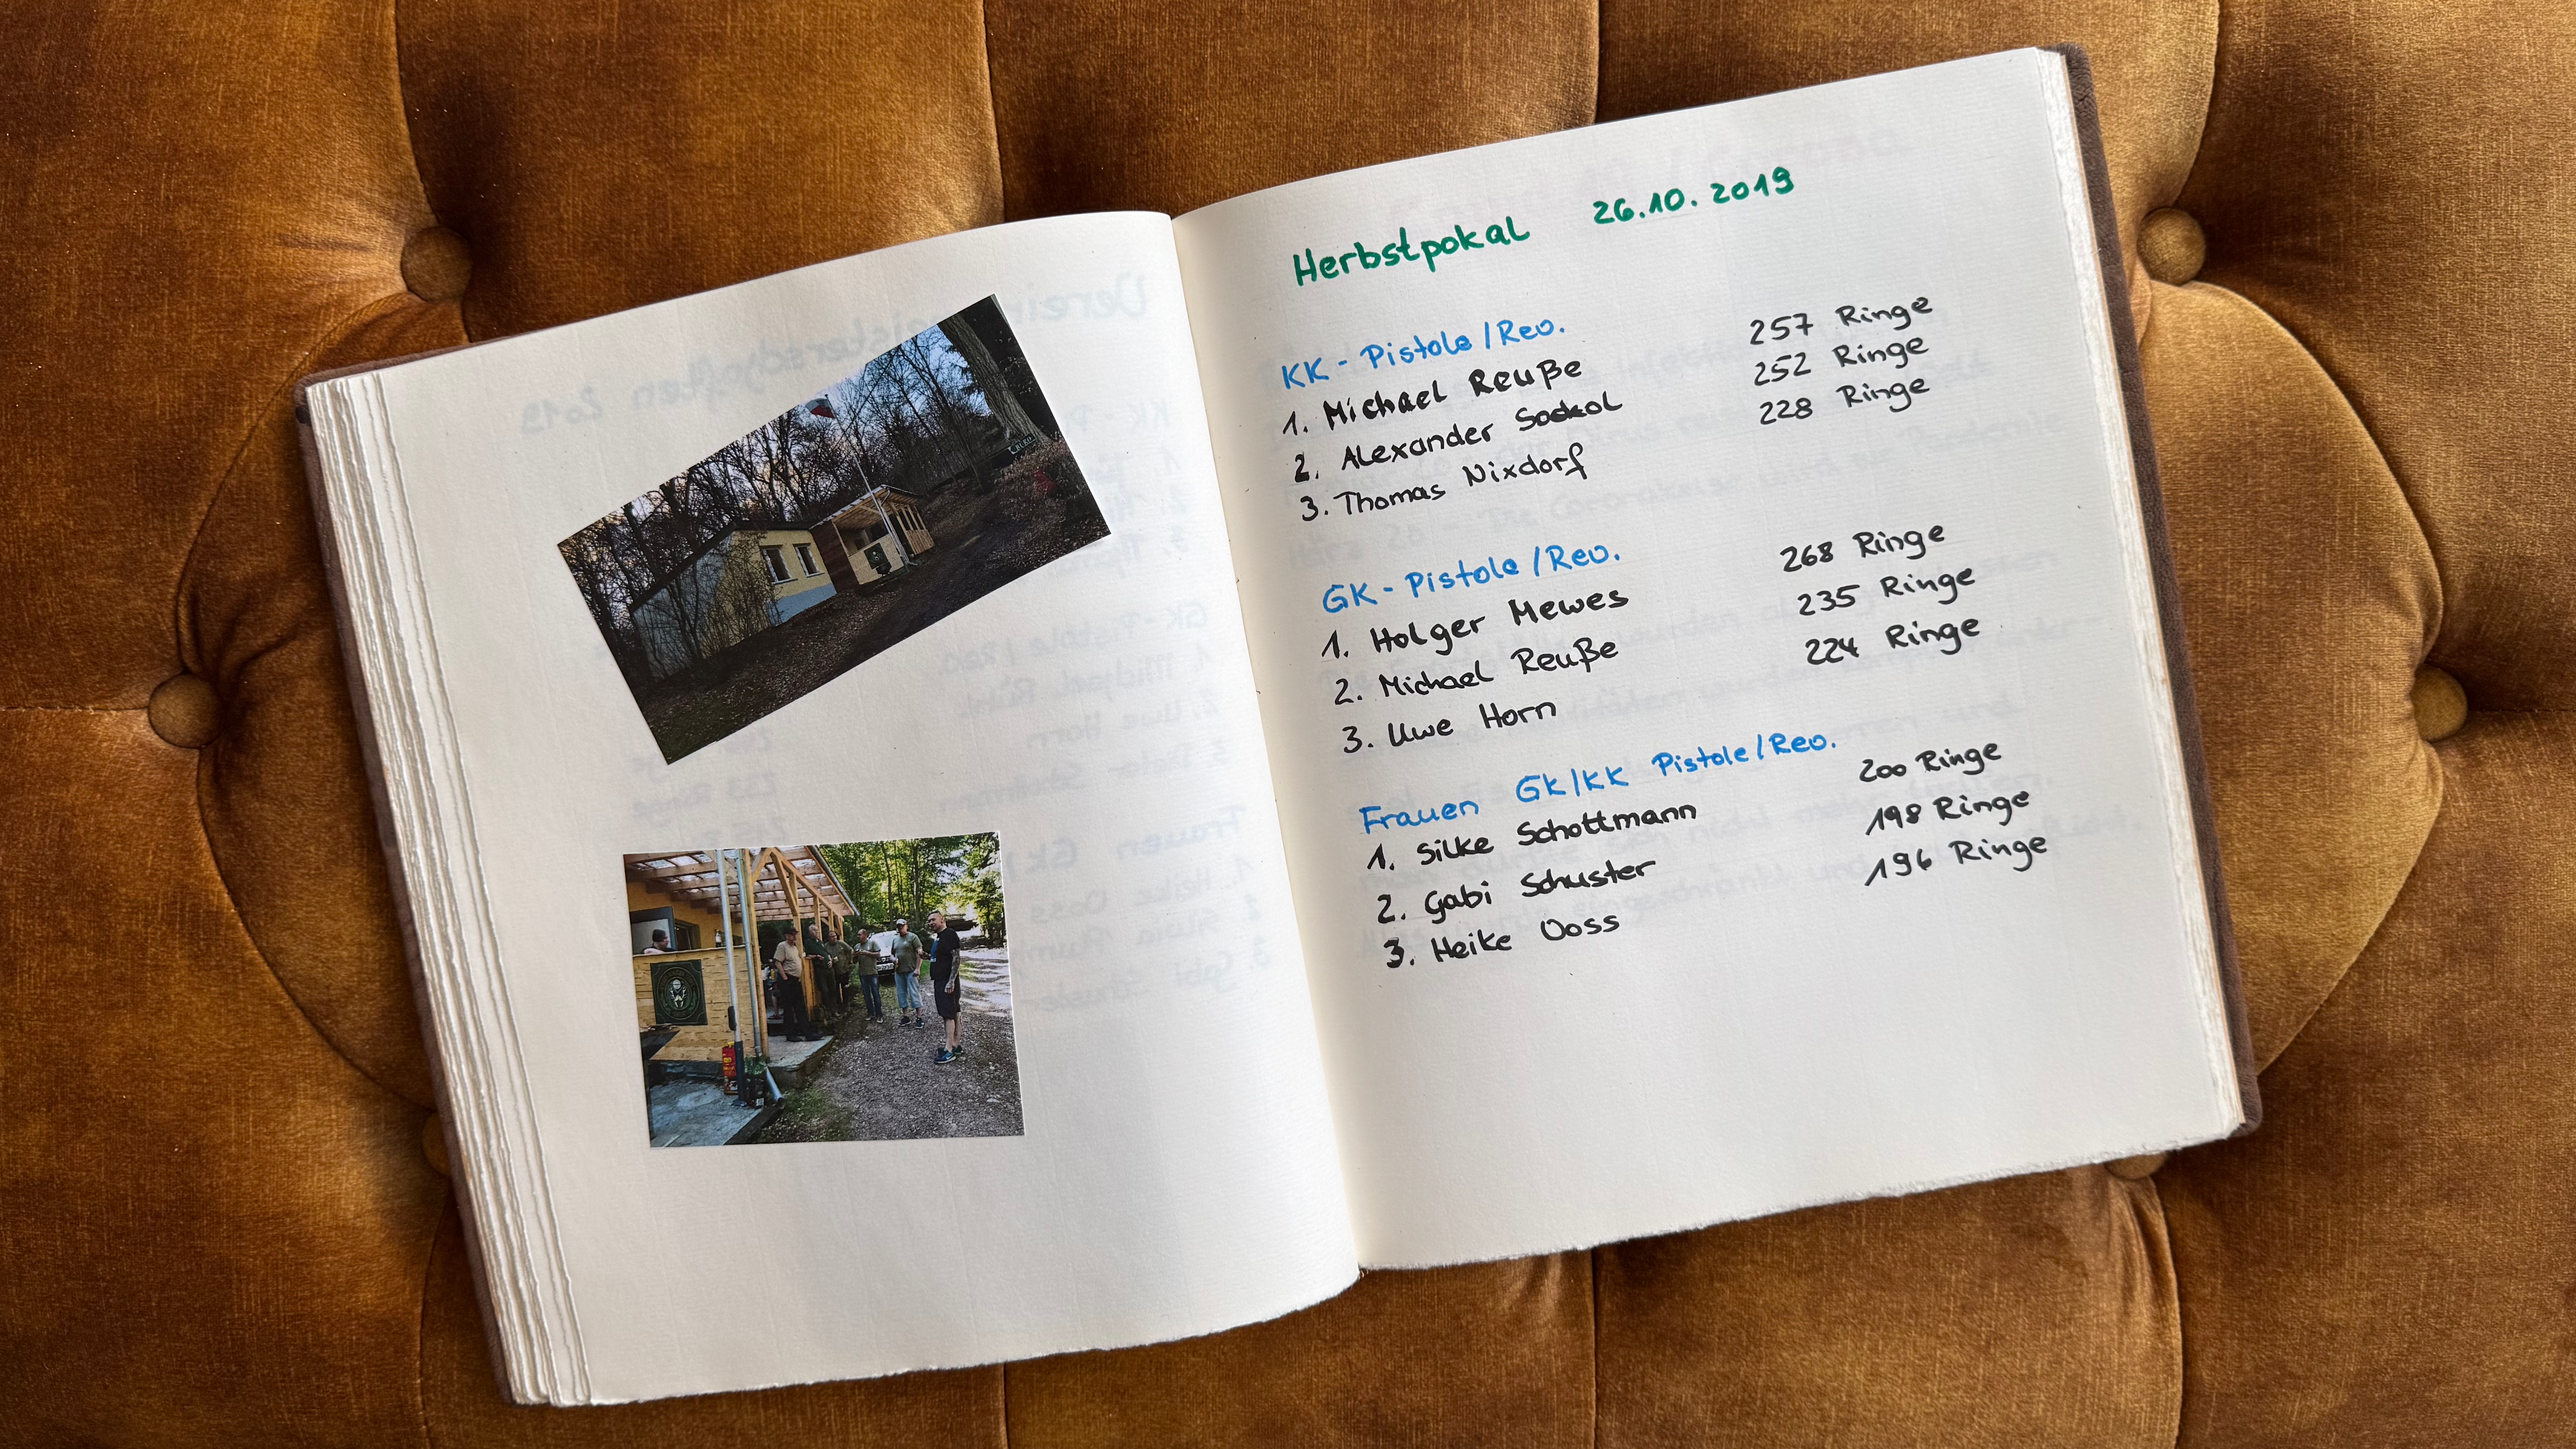 Herbstpokal 26.10.2019
KK - Pistole/Rev.
1. Michael Reuße 257 Ringe
2. Alexander Sockol 252 Ringe
3. Thomas Nixdorf 228 Ringe
GK - Pistole/Rev.
1. Holger Mewes 268 Ringe
2. Michael Reuße 235 Ringe
3. Uwe Horn 224 Ringe
Frauen GK/KK Pistole/Rev.
1. Silke Schottmann 200 Ringe
2. Gabi Schuster 198 Ringe
3. Heike Voss 196 Ringe